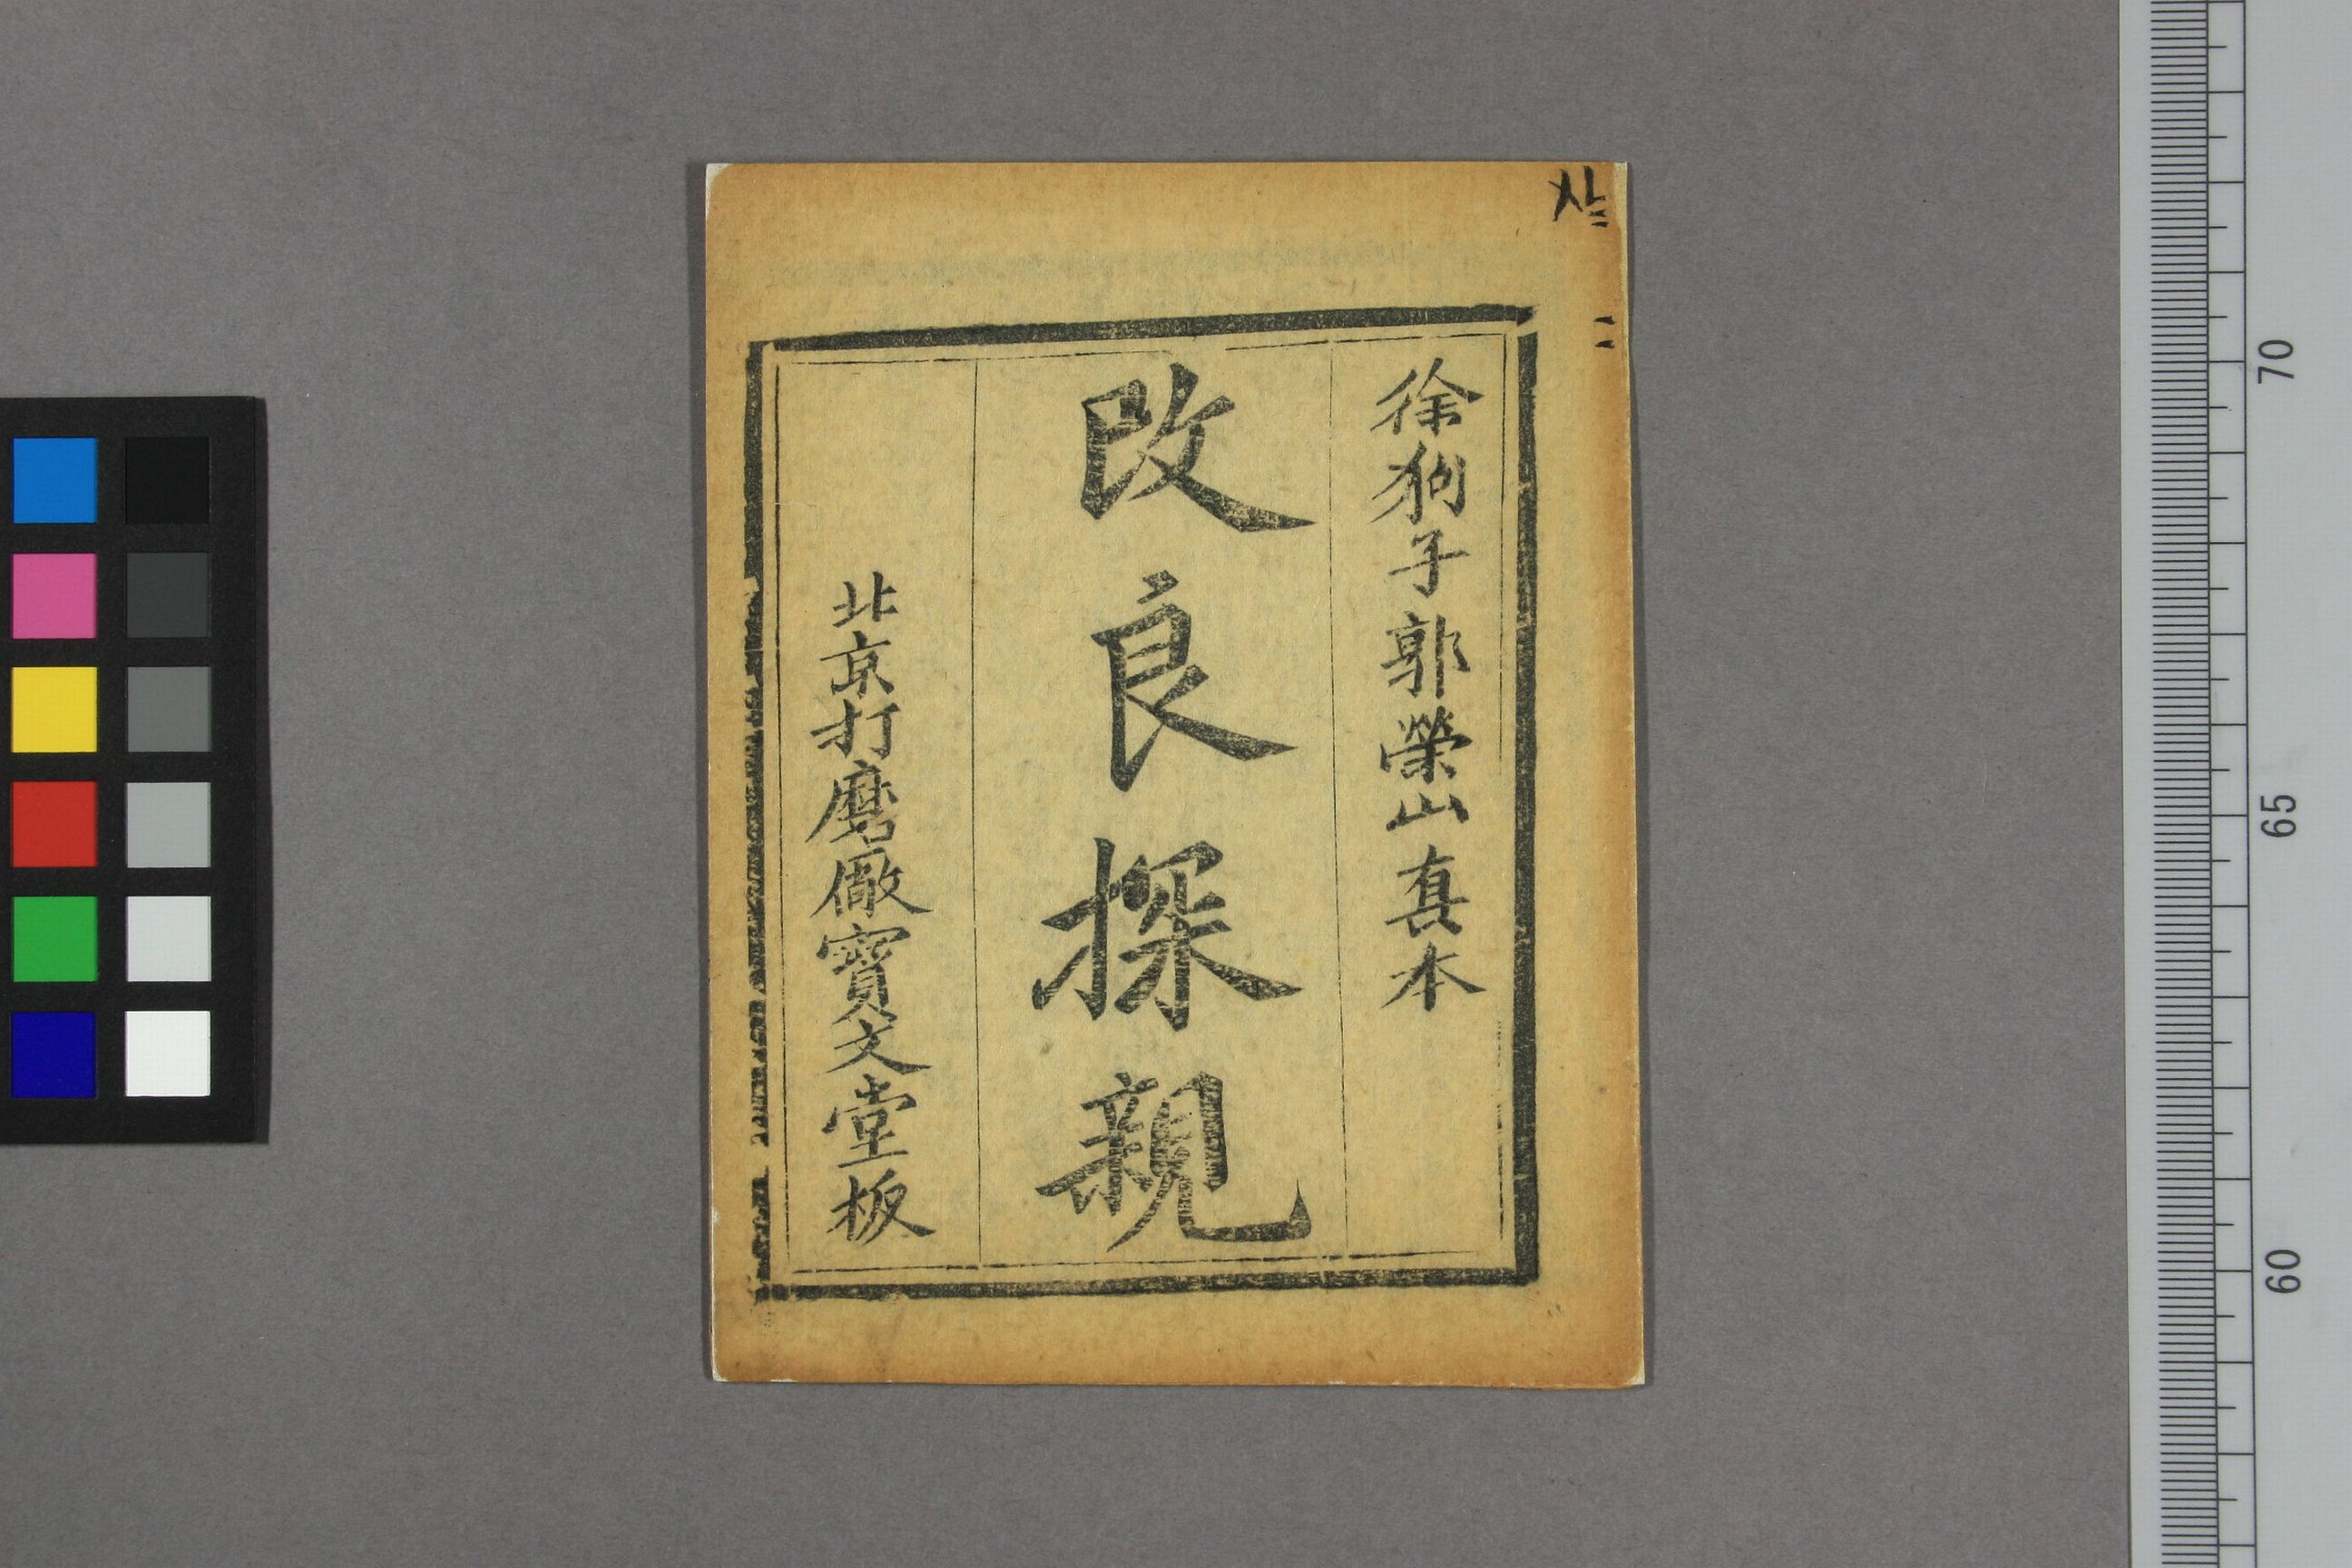 徐狗子郭榮山真本
改良探親
北京打磨厰寳文堂板
70
65
60